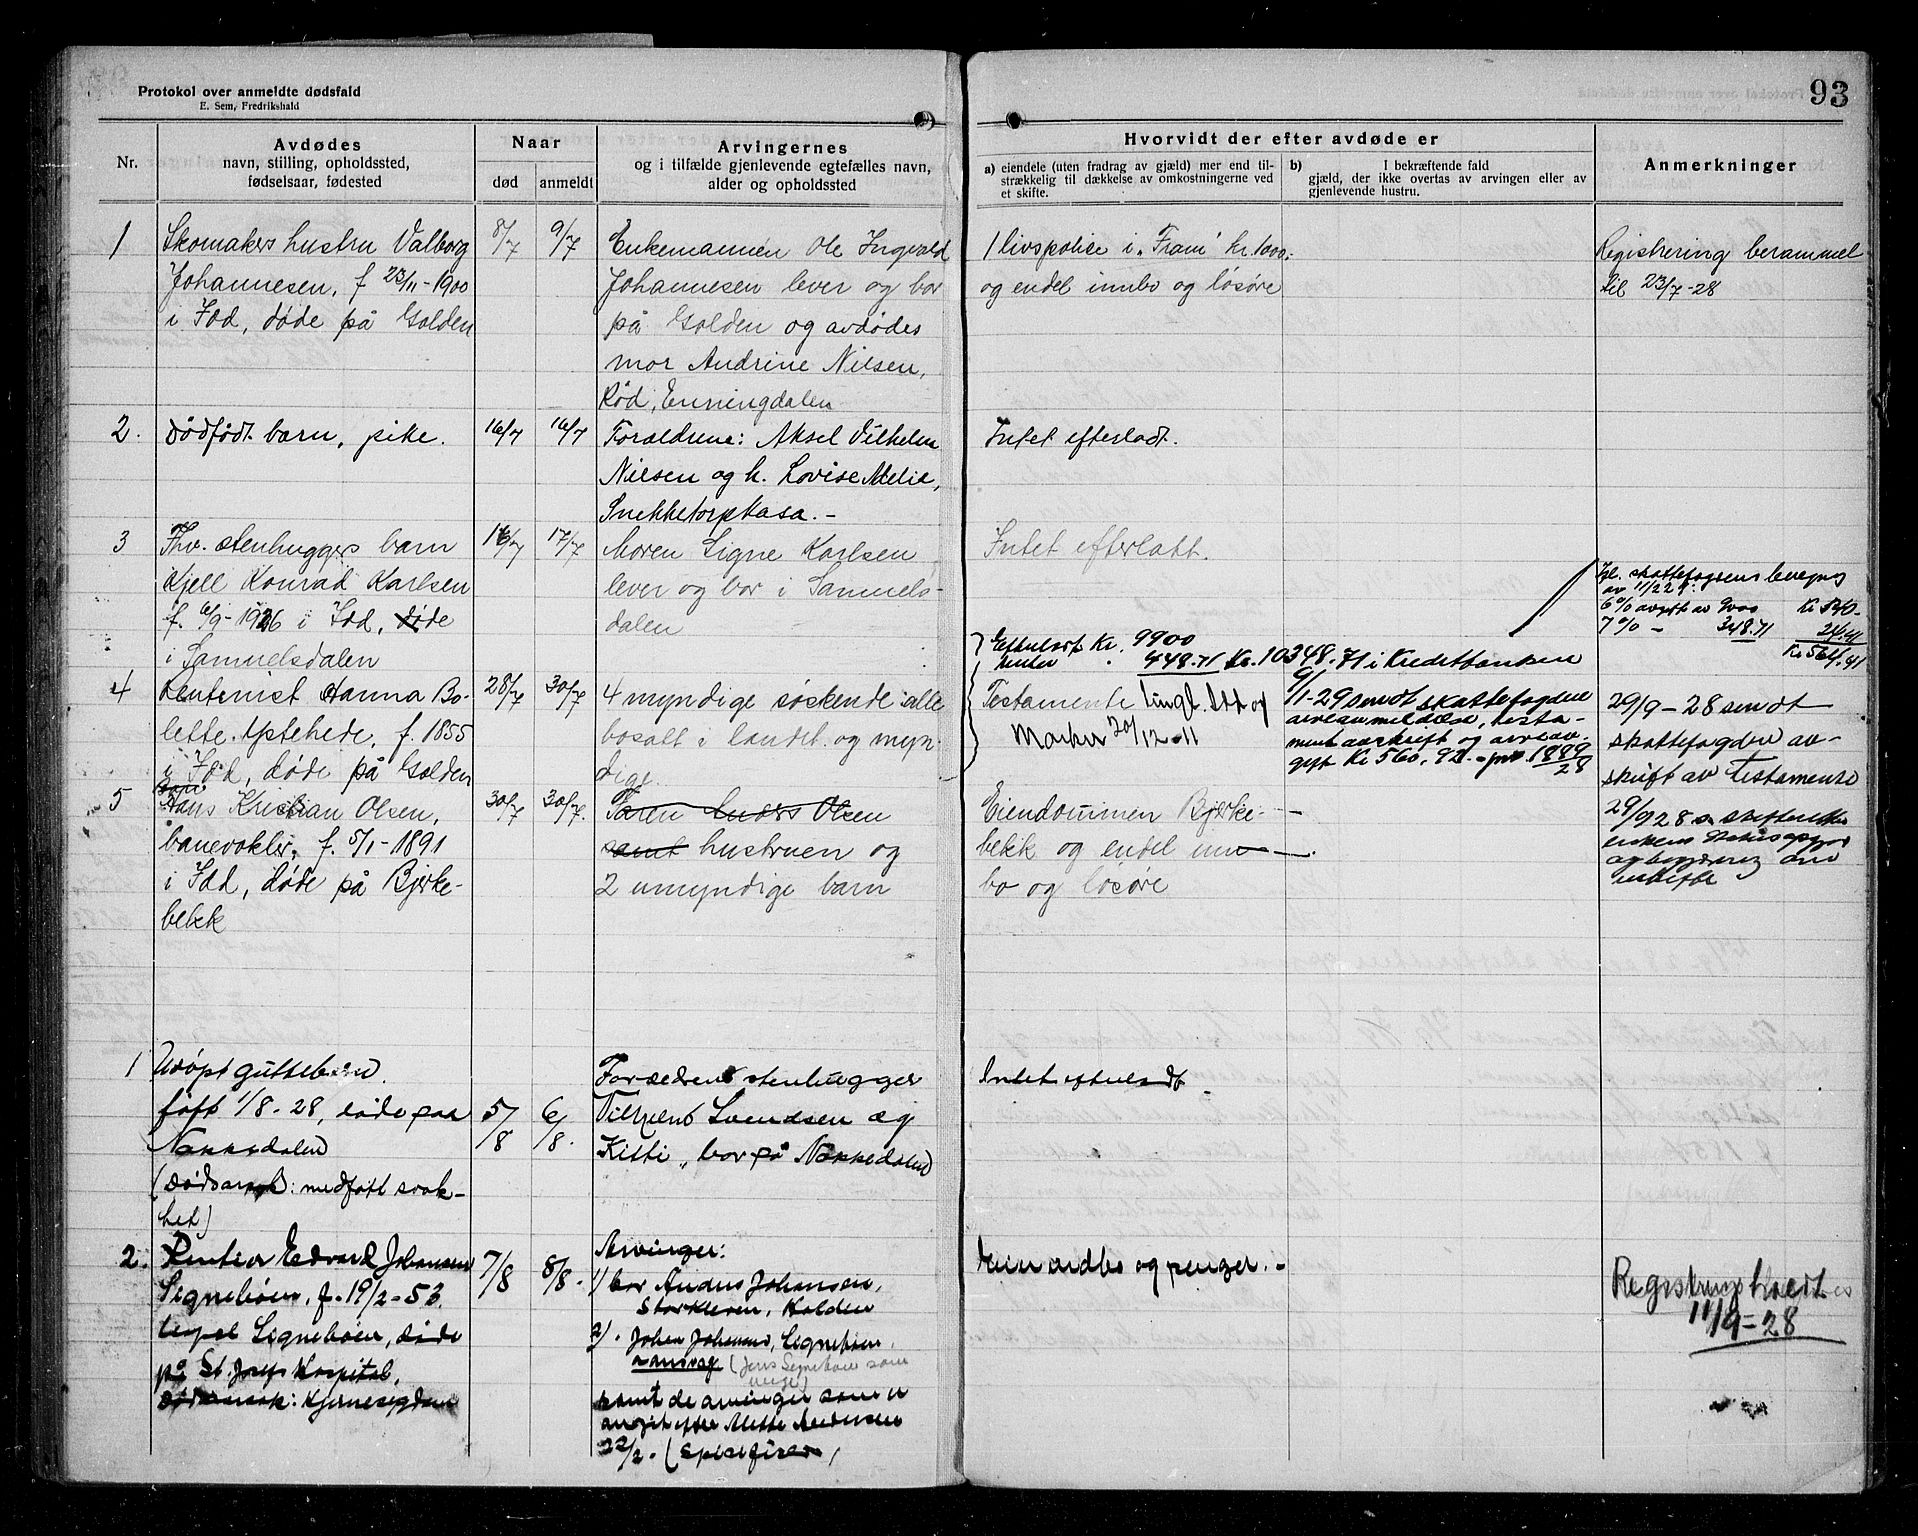 93
Protokol over anmeldte dødsfald
E. Sem, Fredrikshald
Nr.
Avdødes
navn, stilling, opholdssted,
fødselsaar, fødested
Naar
død
anmeldt
Arvingernes
og i tilfælde gjenlevende egtefælles navn,
alder og opholdssted
Hvorvidt der efter avdøde er
a) eiendele (uten fradrag av gjæld) mer end til-
strækkelig til dækkelse av omkostningerne ved
et skifte.
b) I bekræftende fald
gjæld, der ikke overtas av arvingen eller av
gjenlevende hustru.
Anmerkninger
1
Skomakers hustru Valborg
Johannesen, f 23/11-1900
i Idd, døde på Golden
8/7
9/7
Enkemannen Ole Ingvald
Johannesen lever og bor
på Golden og avdødes
mor Andrine Nilsen,
Rød, Enningdalen
1 livspolice i "Fram" kr. 1000.-
og endel innbo og løsøre
Registrering berammet
til 23/7-28
2.
Dødfødt barn, pike.
16/7
16/7
Foreldrene: Aksel Vilhelm
Nilsen og h. Lovise Melia,
Snekketorpkasa. -
Intet efterladt.
3
Fhv. stenhuggers barn
Kjell Konrad Karlsen
f. 6/9-1926 i Idd, døde
i Samuelsdalen
16/7
17/7
Moren Signe Karlsen
lever og bor i Samuels-
dalen
Intet efterlatt.
av 11/229:
6% avgift av 9000 Kr 540-
7% - 348.71 24.41
Kr 564.41
4
Rentenist Hanna Bo-
lette Ystehede, f. 1855
i Idd, døde på Golden
28/7
30/7
4 myndige søskende alle
bosatt i landet og myn-
dige
Efterladt Kr. 9900
renter " 448.71 Kr. 10348.71 i Kreditbanken
Testamente tingl. Idd og
Marker 20/12-11
9/1-29 sendt skattefogden
arveanmeldelse, testa-
mentavskrift og arveav-
gift Kr 560,92 - jnr 1889/28
29/9-28 sendt
skattefogden av-
skrift av Testamente
5
Hans Kristian Olsen,
banevokter, f. 5/1-1891
i Idd, døde på Bjerke-
bekk
30/7
30/7.
Faren Anders Olsen
samt hustruen og
2 umyndige barn
Eiendommen Bjerke-
bekk og endel inn-
bo og løsøre
29/9 28
1
Udøpt guttebarn
født 1/8-28, døde paa
Nakkedalen
(Dødsarsak: medfødt svak-
het)
5/8
6/8.
Foreldrene stenhugger
Svendsen og
Kitti, bor på Nakkedalen
Intet efterladt -
2.
Rentier Edvard Johansen
Signebøen, f. 19/2-53.
Signebøen, døde
på St. Josefs Hospital,
Dødsarsak:
7/8
8/8.
Arvinger:
1) bor Anders Johansen,
Storkleven, Halden
2). Johan Johansen, Signebøen,
(Jens Signebøen som
verge)
samt de arvinger som er
angit efter Mette Andersen
22/2. (
innbo og penger. -
Registrering holdt
11/9-28